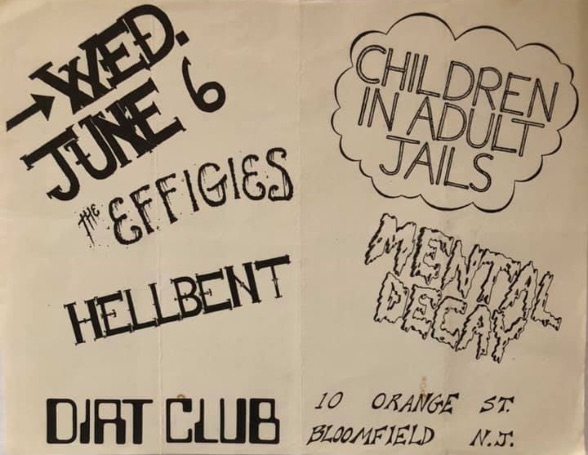 →WED.
JUNE 6
THE EFFIGIES
HELLBENT
DIRT CLUB
CHILDREN
IN ADULT
JAILS
MENTAL
DECAY
10 ORANGE ST.
BLOOMFIELD N.J.